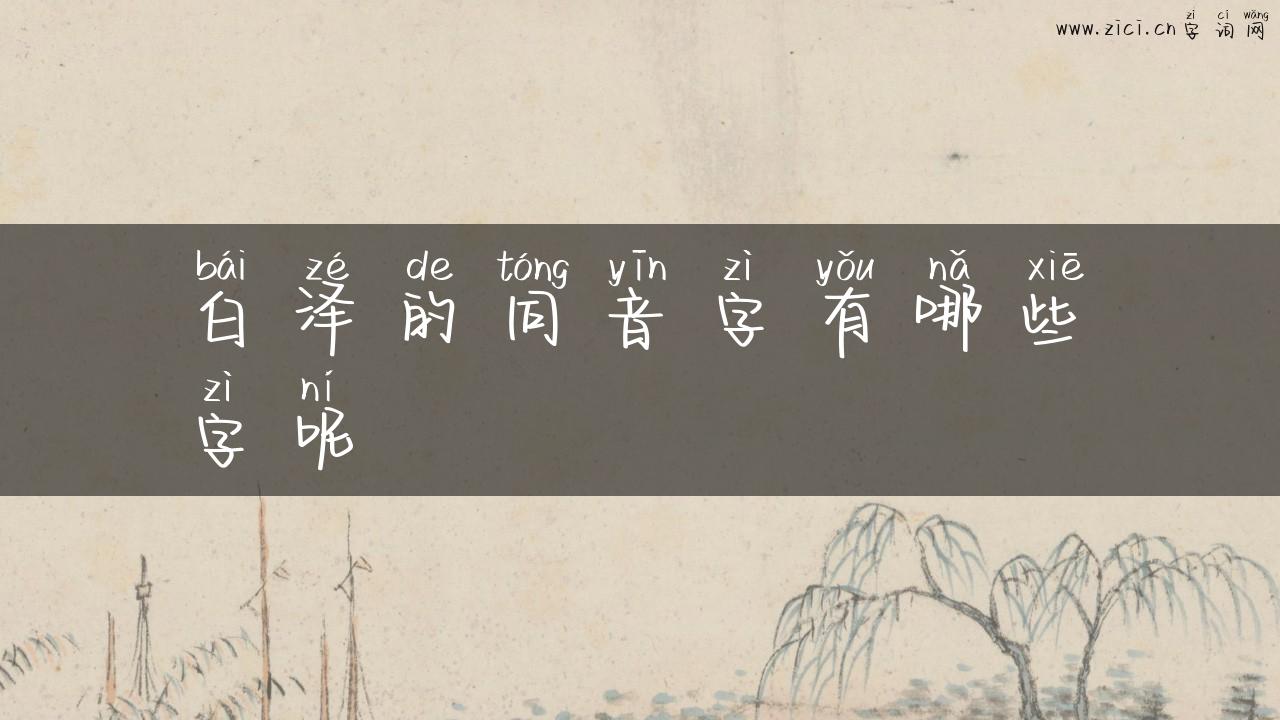 zì cí wǎng
www.zici.cn 字词网
bái zé de tóng yīn zì yǒu nǎ xiē
白泽的同音字有哪些
zì ní
字呢